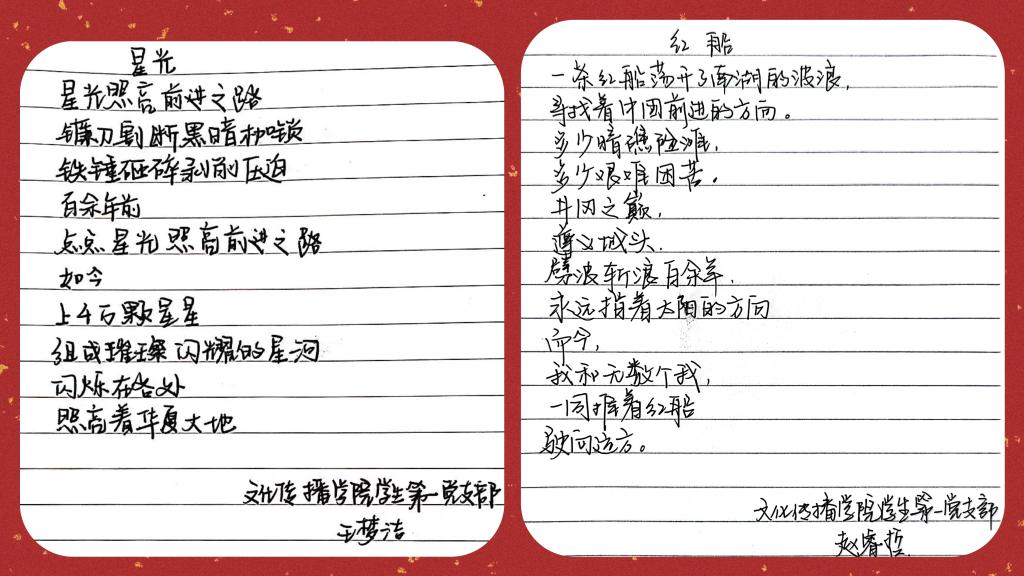 星光
星光照亮前进之路
镰刀割断黑暗枷锁
铁锤砸碎剥削压迫
百余年前
点点星光照亮前进之路
如今
上千万颗星星
组成璀璨闪耀的星河
闪烁在各处
照亮着华夏大地
文化传播学院学生第一党支部
王梦洁
红船
一条红船荡开了南湖的波浪,
寻找着中国前进的方向。
多少暗礁险滩,
多少艰难困苦。
井冈之巅,
遵义城头.
劈波斩浪百余年,
永远指着太阳的方向
而今,
我和无数个我,
一同推着红船
驶向远方。
文化传播学院学生第一党支部
赵睿哲